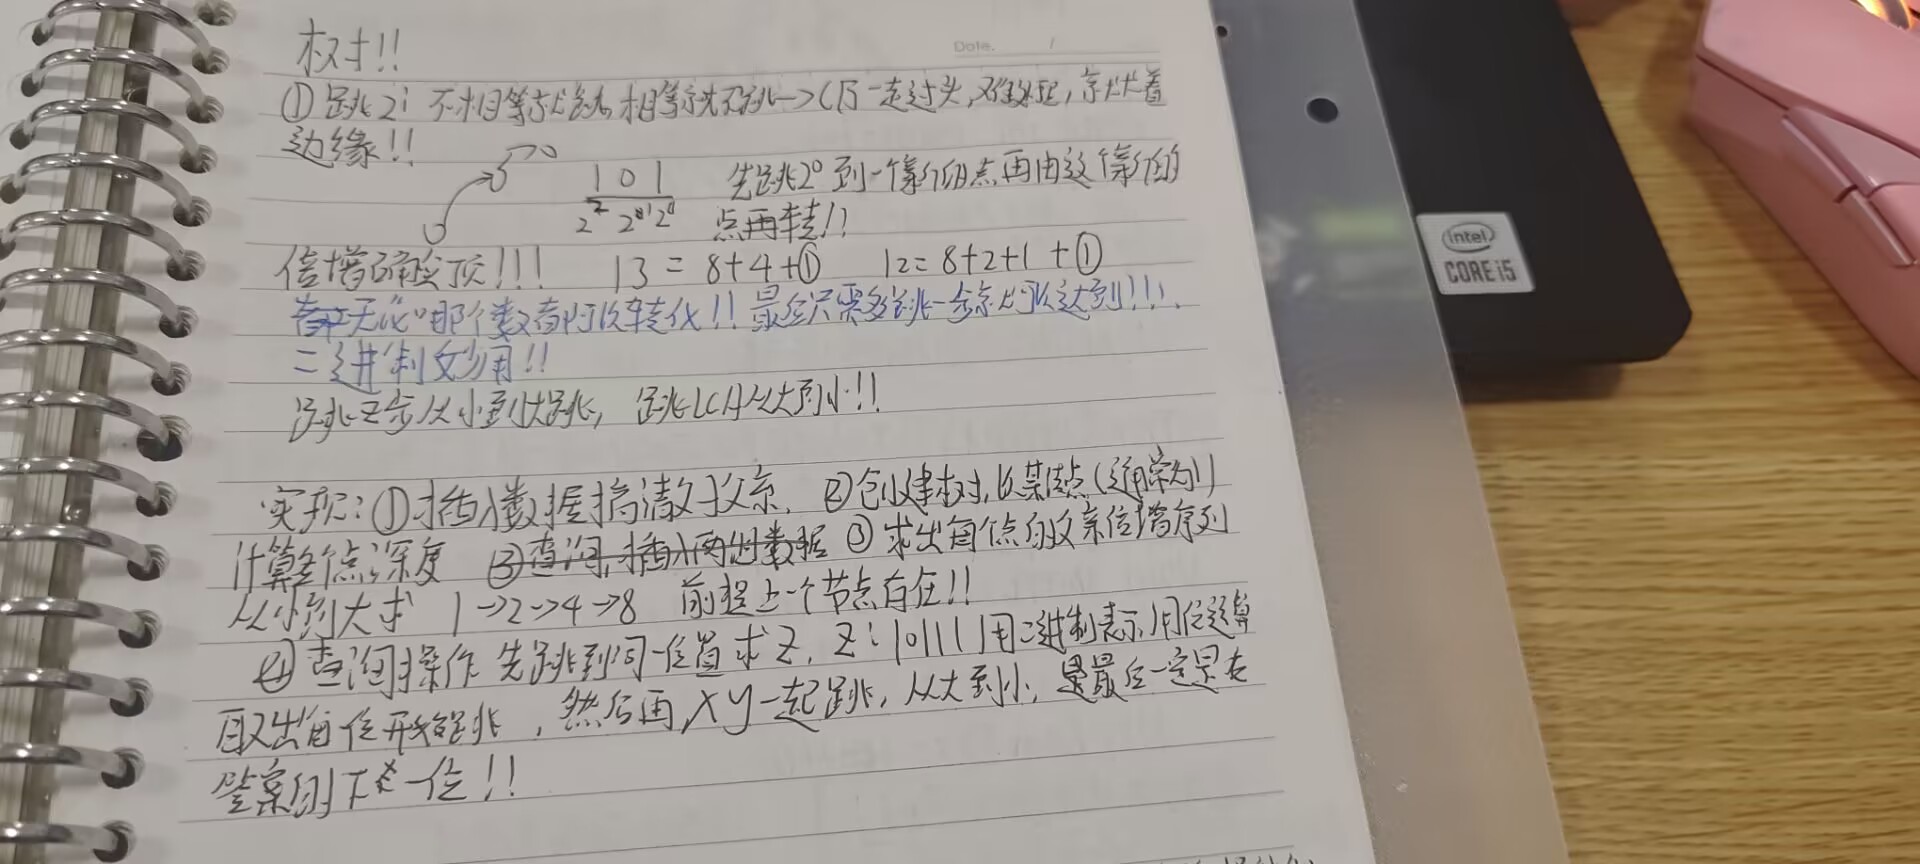 树!!
Date. /
① 跳2i 不相等就跳,相等就不跳→(万一走过头,难处理,就卡着
边缘!!
1 0 1 先跳2⁰到一个新的点再由这个新的
2² 2¹ 2⁰ 点再转!!
倍增 !!! 13 = 8+4+① 12 = 8+2+1 +①
无论哪个数都可以转化!! 最后只需多跳一步就可以达到!!!
二进制妙用!!
跳Z步从小到大跳, 跳LCA从大到小!!
intel
CORE i5
实现:①插入数据搞清父亲. ②创建树,从某点(通常为1)
计算各个点深度 ③查询,插入两组数据 ③求出每个点的父亲倍增序列
从小到大求 1→2→4→8 前提上一个节点存在!!
④查询操作 先跳到同一位置求Z, Z: 101111用二进制表示,用位运算
取出每位开始跳, 然后再,x y一起跳, 从大到小, 最后一定是在
答案的下一位!!